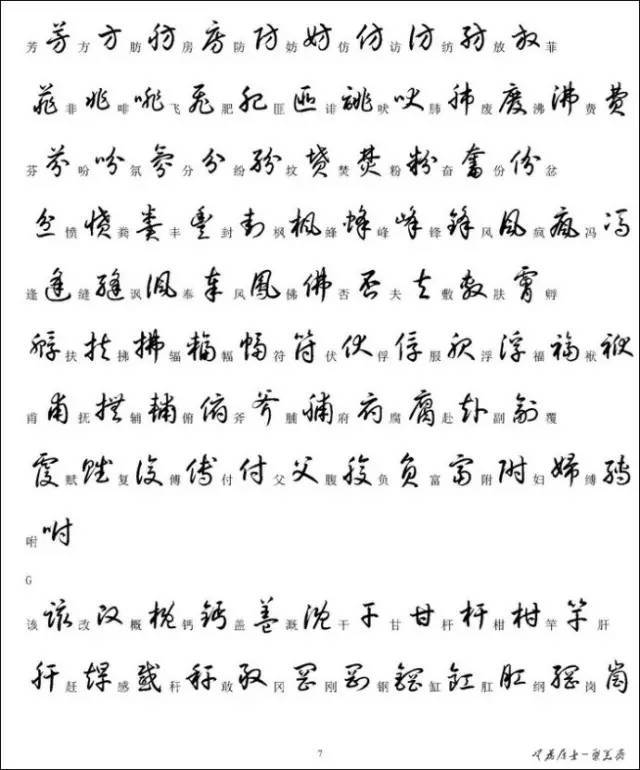 芳 芳 方 方 肪 肪 房 房 防 防 妨 妨 仿 仿 访 访 纺 纺 放 放 菲
菲 非 非 啡 啡 飞 飛 肥 肥 匪 匪 诽 诽 吠 吠 肺 肺 废 废 沸 沸 费 費
芬 芬 吩 吩 氛 氛 分 分 纷 纷 坟 墳 焚 焚 粉 粉 奋 奮 份 份 忿
忿 愤 憤 粪 糞 丰 豐 封 封 枫 楓 蜂 蜂 峰 峰 锋 鋒 风 風 疯 瘋 冯 馮
逢 逢 缝 縫 讽 諷 奉 奉 凤 鳳 佛 佛 否 否 夫 夫 敷 敷 肤 膚 孵
孵 扶 扶 拂 拂 辐 輻 幅 幅 符 符 伏 伏 俘 俘 服 服 浮 浮 福 福 袱 袱
甫 甫 抚 撫 辅 輔 俯 俯 斧 斧 脯 脯 府 府 腐 腐 赴 赴 副 副 覆
覆 赋 賦 复 復 傅 傅 付 付 父 父 腹 腹 负 負 富 富 附 附 妇 婦 缚 縛
咐 咐
G
该 該 改 改 概 概 钙 鈣 盖 蓋 溉 溉 干 干 甘 甘 杆 杆 柑 柑 竿 竿 肝
肝 赶 趕 感 感 秆 秆 敢 敢 冈 岡 刚 剛 钢 鋼 缸 缸 肛 肛 纲 綱 岗 崗
7